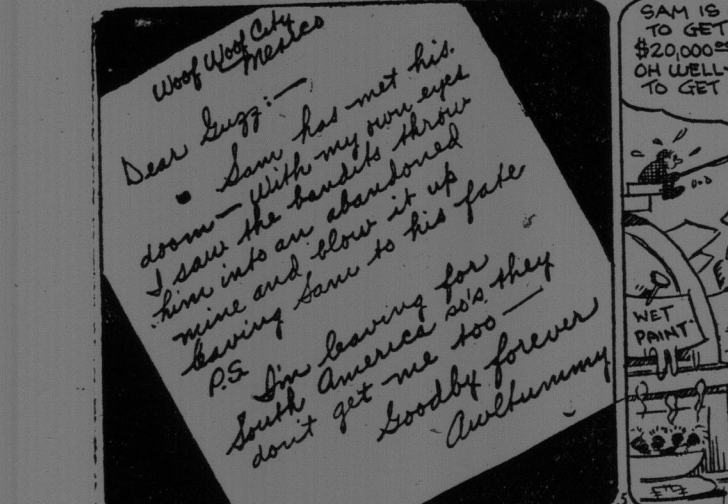 Woof Woof City
Mexico
Dear Guzz:—
Sam has met his
doom — With my own eyes
I saw the bandits throw
him into an abandoned
mine and blow it up
leaving Sam to his fate
P.S. I'm leaving for
South America so's they
don't get me too —
Goodby forever
SAM IS
TO GET
$20,000
OH WELL-
TO GET
WET
PAINT-